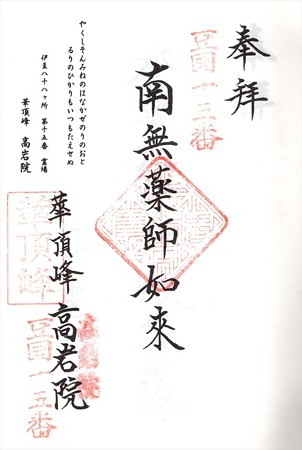 奉拝
豆国十五番
南無薬師如来
華頂峰 高岩院
華頂峰
豆国十五番
やくしそんみねのはなかぜのりのおと
るりのひかりもいつもたえせぬ
伊豆八十八ヶ所 第十五番 霊場
華頂峰 高岩院